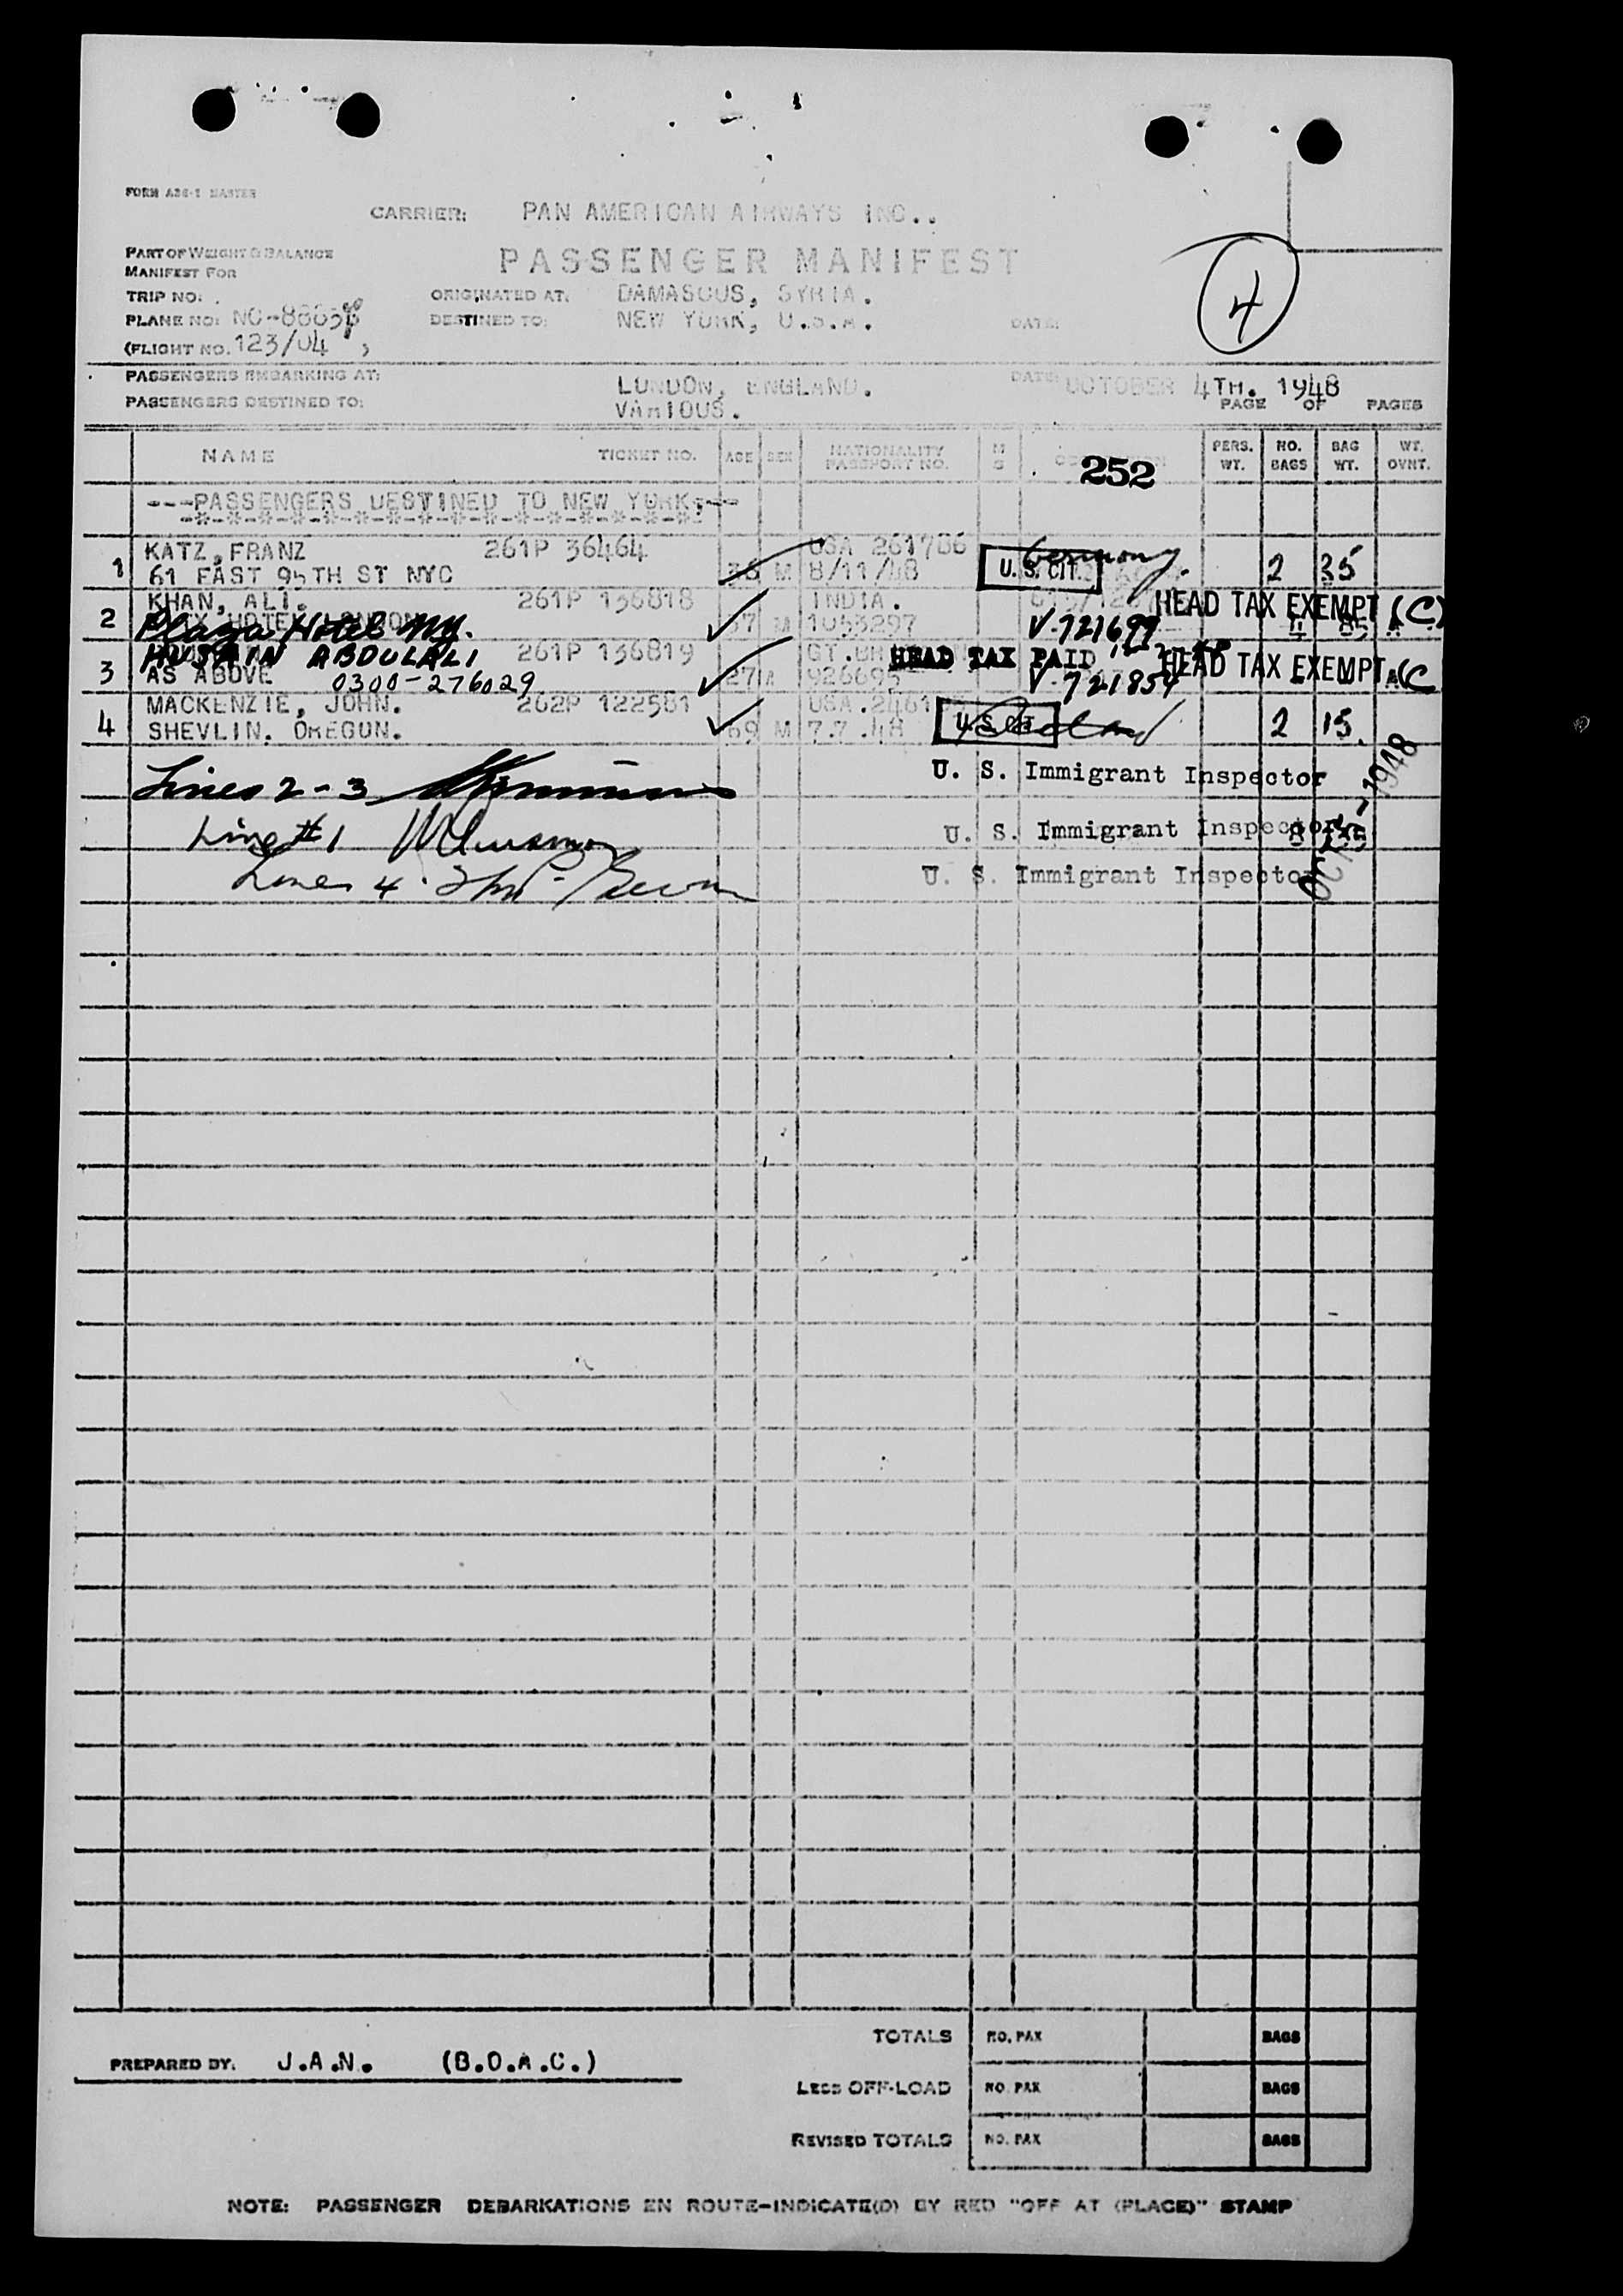 FORM A26-1 MASTER
CARRIER: PAN AMERICAN AIRWAYS INC..
PASSENGER MANIFEST
PART OF WEIGHT & BALANCE
MANIFEST FOR
TRIP NO:
ORIGINATED AT: DAMASCUS, SYRIA.
PLANE NO:
DESTINED TO: NEW YORK, U.S.A.
DATE:
4
(FLIGHT NO. 123/04 )
PASSENGERS EMBARKING AT: LONDON, ENGLAND.
DATE: OCTOBER 4TH. 1948
PASSENGERS DESTINED TO: VARIOUS.
PAGE OF PAGES
NAME TICKET NO. AGE SEX NATIONALITY PASSPORT NO. M S 252 PERS. WT. NO. BAGS BAG WT. WT. OVNT.
---PASSENGERS DESTINED TO NEW YORK:---
-*-*-*-*-*-*-*-*-*-*-*-*-*-*-*-*:
1 KATZ, FRANZ 261P 36464 USA 261786 Germany.
61 EAST 95TH ST NYC 36 M 8/11/48 U. S. CIT. 2 35
2 KHAN, ALI. 261P 136818 INDIA. HEAD TAX EXEMPT (C)
Plaza Hotel NY. 37 M 1053297 V-721699 4 85
3 HUSSAIN ABDULALI 261P 136819 GT. HEAD TAX PAID HEAD TAX EXEMPT (C
AS ABOVE 0300-276029 27 926695 V-721854
4 MACKENZIE, JOHN. 262P 122561 USA.
SHEVLIN. OREGON. 69 M 7.7.48 U.S. CIT. 2 15.
Lines 2-3 U. S. Immigrant Inspector
Line #1 U. S. Immigrant Inspector
Lines 4. U. S. Immigrant Inspector
1948
PREPARED BY: J.A.N. (B.O.A.C.)
TOTALS NO. PAX BAGS
LESS OFF-LOAD NO. PAX BAGS
REVISED TOTALS NO. PAX BAGS
NOTE: PASSENGER DEBARKATIONS EN ROUTE-INDICATE(D) BY RED "OFF AT (PLACE)" STAMP